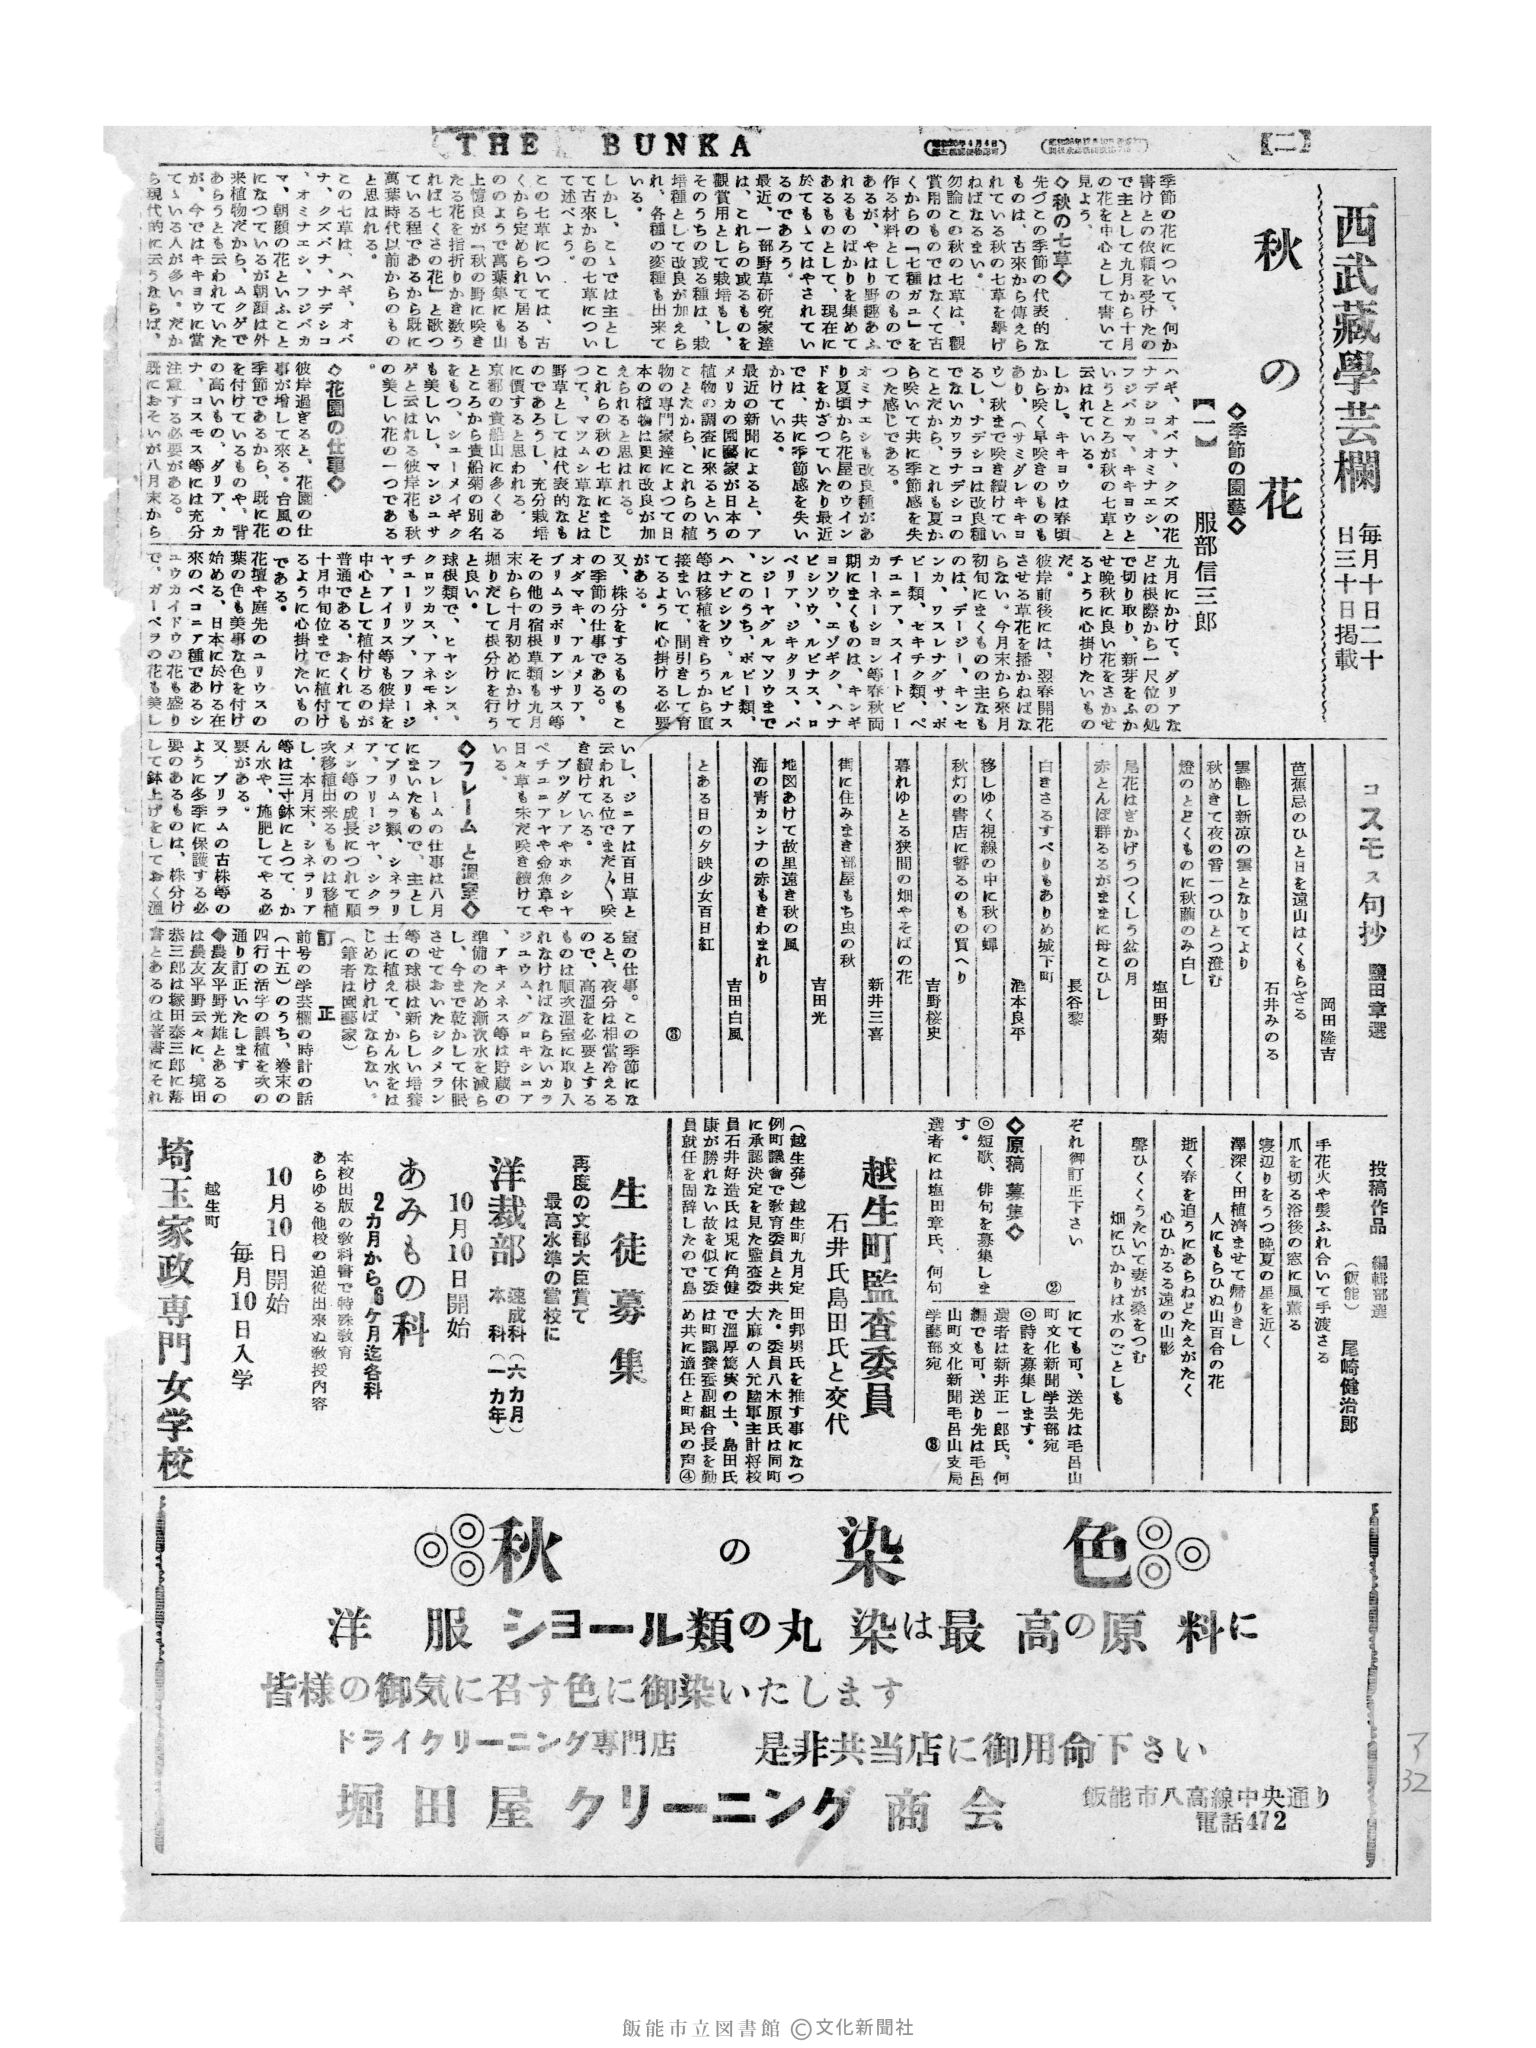 THE BUNKA
【二】
西武藏學芸欄
毎月十日二十
日三十日掲載
秋の花
◇季節の園藝◇
【一】 服部信三郎
季節の花について、何か
書けとの依頼を受けたの
で主として九月から十月
の花を中心として書いて
見よう。
◇秋の七草◇
先づこの季節の代表的な
ものは、古來から傳えら
れている秋の七草を擧げ
ねばなるまい。
勿論この秋の七草は、觀
賞用のものではなくて古
くからの「七種ガュ」を
作る材料としてのもので
あるが、やはり野趣あふ
れるものばかりを集めて
あるものとして、現在に
於てもゝてはやされてい
るのであろう。
最近、一部野草研究家達
は、これらの或るものを
觀賞用として栽培もし、
そのうちの或る種は、栽
培種として改良が加えら
れ、各種の変種も出來て
いる。
しかし、こゝでは主とし
て古來からの七草につい
て述べよう。
この七草については、古
くから定められて居るも
ののようで萬葉集にも山
上憶良が「秋の野に咲き
たる花を指折りかき数う
れば七くさの花」と歌つ
ている程であるから既に
萬葉時代以前からのもの
と思はれる。
この七草は、ハギ、オバ
ナ、クズバナ、ナデシコ
、オミナエシ、フジバカ
マ、朝顔の花といふこと
になつているが朝顔は外
来植物だから、ムクゲで
あらうとも云われていた
が、今ではキキョウに當
てゝいる人が多い。だか
ら現代的に云うならば、
ハギ、オバナ、クズの花
ナデシコ、オミナエシ、
フジバカマ、キキョウと
いうところが秋の七草と
云はれている。
しかし、キキョウは春頃
から咲く早咲きのものも
あり、(サミダレキキョ
ウ)秋まで咲き續けてい
るし、ナデシコは改良種
でないカワラナデシコの
ことだから、これも夏か
ら咲いて共に季節感を失
つた感じである。
オミナエシも改良種があ
り夏頃から花屋のウイン
ドをかざつていたり最近
では、共に季節感を失い
かけている。
最近の新聞によると、ア
メリカの園藝家が日本の
植物の調査に來るという
ことだから、これらの植
物の専門家達によつて日
本の植物は更に改良が加
えられると思はれる。
これらの秋の七草にまじ
つて、マツムシ草などは
野草としては代表的なも
のであろうし、充分栽培
に價すると思われる。
京都の貴船山に多くある
ところから貴船菊の別名
をもつ、シューメイギク
も美しいし、マンジュサ
ゲと云はれる彼岸花も秋
の美しい花の一つである
。
◇花園の仕事◇
彼岸過ぎると、花園の仕
事が増して來る。台風の
季節であるから、既に花
を付けているものや、背
の高いもの、ダリア、カ
ナ、コスモス等には充分
注意する必要がある。
既におそいが八月末から
九月にかけて、ダリアな
どは根際から一尺位の処
で切り取り、新芽をふか
せ晩秋に良い花をさかせ
るように心掛けたいもの
だ。
彼岸前後には、翌春開花
させる草花を播かねばな
らない。今月末から來月
初旬にまくものの主なも
のは、デージー、キンセ
ンカ、ワスレナグサ、ポ
ピー類、セキチク類、ペ
チュニア、スイートピー
カーネーション等春秋両
期にまくものは、キンギ
ヨソウ、エゾギク、ハナ
ビシソウ、ルピナス、ロ
ベリア、ジキタリス、パ
ンジーヤグルマソウまで
、このうち、ポピー類、
ハナビシソウ、ルピナス
等は移植をきらうから直
接まいて、間引きして育
てるように心掛ける必要
がある。
又、株分をするものもこ
の季節の仕事である。
オダマキ、アルメリア、
プリムラポリアンサス等
その他の宿根草類も九月
末から十月初めにかけて
堀りだして根分けを行う
と良い。
球根類で、ヒヤシンス、
クロツカス、アネモネ、
チューリツプ、フリージ
ヤ、アイリス等も彼岸を
中心として植付けるのが
普通である、おくれても
十月中旬位までに植付け
るように心掛けたいもの
である。
花壇や庭先のユリウスの
葉の色も美事な色を付け
始める、日本に於ける在
來のベコニア種であるシ
ュウカイドウの花も盛り
で、ガーベラの花も美し
いし、ジニアは百日草と
云われる位でまだ〳〵咲
き続けている。
ブツグレアやホクシヤ
ペチュニアや金魚草や
日々草も未だ咲き続けて
いる。
◇フレームと温室◇
フレームの仕事は八月
にまいたもので、主とし
てプリムラ類、シネラリ
ア、フリージヤ、シクラ
メン等の成長につれて順
次移植出來るものは移植
し、本月末、シネラリア
等は三寸鉢にとつて、か
ん水や、施肥してやる必
要がある。
又、プリラムの古株等の
ように冬季に保護する必
要のあるものは、株分け
して鉢上げをしておく溫
室の仕事。この季節にな
ると、夜分は相當冷える
ので、高溫を必要とする
ものは順次溫室に取り入
れなければならないカラ
ジュウム、グロキシニア
、アキメネス等は貯蔵の
準備のため漸次水を減ら
し、今まで乾かして休眠
させておいたシクメラン
等の球根は新らしい培養
土に植えて、かん水をは
じめなければならない。
(筆者は園藝家)
訂正
前号の学芸欄の時計の話
(十五)のうち、巻末の
四行の活字の誤植を次の
通り訂正いたします
◆農友平野光雄とあるの
は農友平野云々に、境田
恭三郎は塚田泰三郎に落
書とあるのは著書にそれ
ぞれ御訂正下さい
②
コスモス句抄 鹽田章選
岡田隆吉
芭蕉忌のひと日を遠山はくもらざる
石井みのる
雲軽し新凉の雲となりてより
秋めきて夜の音一つひとつ澄む
塩田野菊
燈のとどくものに秋繭のみ白し
尾花はぎかげうつくしう盆の月
長谷黎
赤とんぼ群るるがままに母こひし
酒本良平
白きさるすべりもありめ城下町
移しゆく視線の中に秋の蟬
吉野桜史
秋灯の書店に誓るのもの買へり
新井三喜
暮れゆとる狹間の畑やそばの花
街に住みまき部屋もち虫の秋
吉田光
地図あけて故里遠き秋の風
海の青カンナの赤もきわまれり
吉田白風
とある日の夕映少女百日紅
③
投稿作品 編輯部選
(飯能) 尾崎健治郎
手花火や髪ふれ合いて手渡さる
爪を切る浴後の窓に風薫る
寝辺りをうつ晩夏の星を近く
澤深く田植濟ませて帰りきし
人にもらひぬ山百合の花
逝く春を追うにあらねどたえがたく
心ひかるる遠の山影
聲ひくくうたいて妻が桑をつむ
畑にひかりは水のごとしも
◇原稿募集◇
◎短歌、俳句を募集しま
す。
選者には塩田章氏、何句
にても可、送先は毛呂山
町文化新聞学芸部宛
◎詩を募集します。
選者は新井正一郎氏、何
編でも可、送り先は毛呂
山町文化新聞毛呂山支局
学藝部宛
③
越生町監査委員
石井氏島田氏と交代
(越生発)越生町九月定
例町議會で教育委員と共
に承認決定を見た監査委
員石井好造氏は兎に角健
康が勝れない故を似て委
員就任を固辞したので島
田邦男氏を推す事になつ
た。委員八木原氏は同町
大麻の人元陸軍主計将校
で溫厚篤実の士、島田氏
は町議養蚕副組合長を勤
め共に適任と町民の声④
生徒募集
再度の文部大臣賞て
最高水準の當校に
洋裁部
速成科(六カ月)
本科(一カ年)
10月10日開始
あみもの科
2カ月から6ケ月迄各科
本校出版の教科書で特殊教育
あらゆる他校の追從出來ぬ教授内容
10月10日開始
毎月10日入学
越生町
埼玉家政専門女学校
秋の染色
洋服ショール類の丸染は最高の原料に
皆様の御気に召す色に御染いたします
ドライクリーニング専門店 是非共当店に御用命下さい
堀田屋クリーニング商会
飯能市八高線中央通り
電話472
32
飯能市立図書館 ©文化新聞社